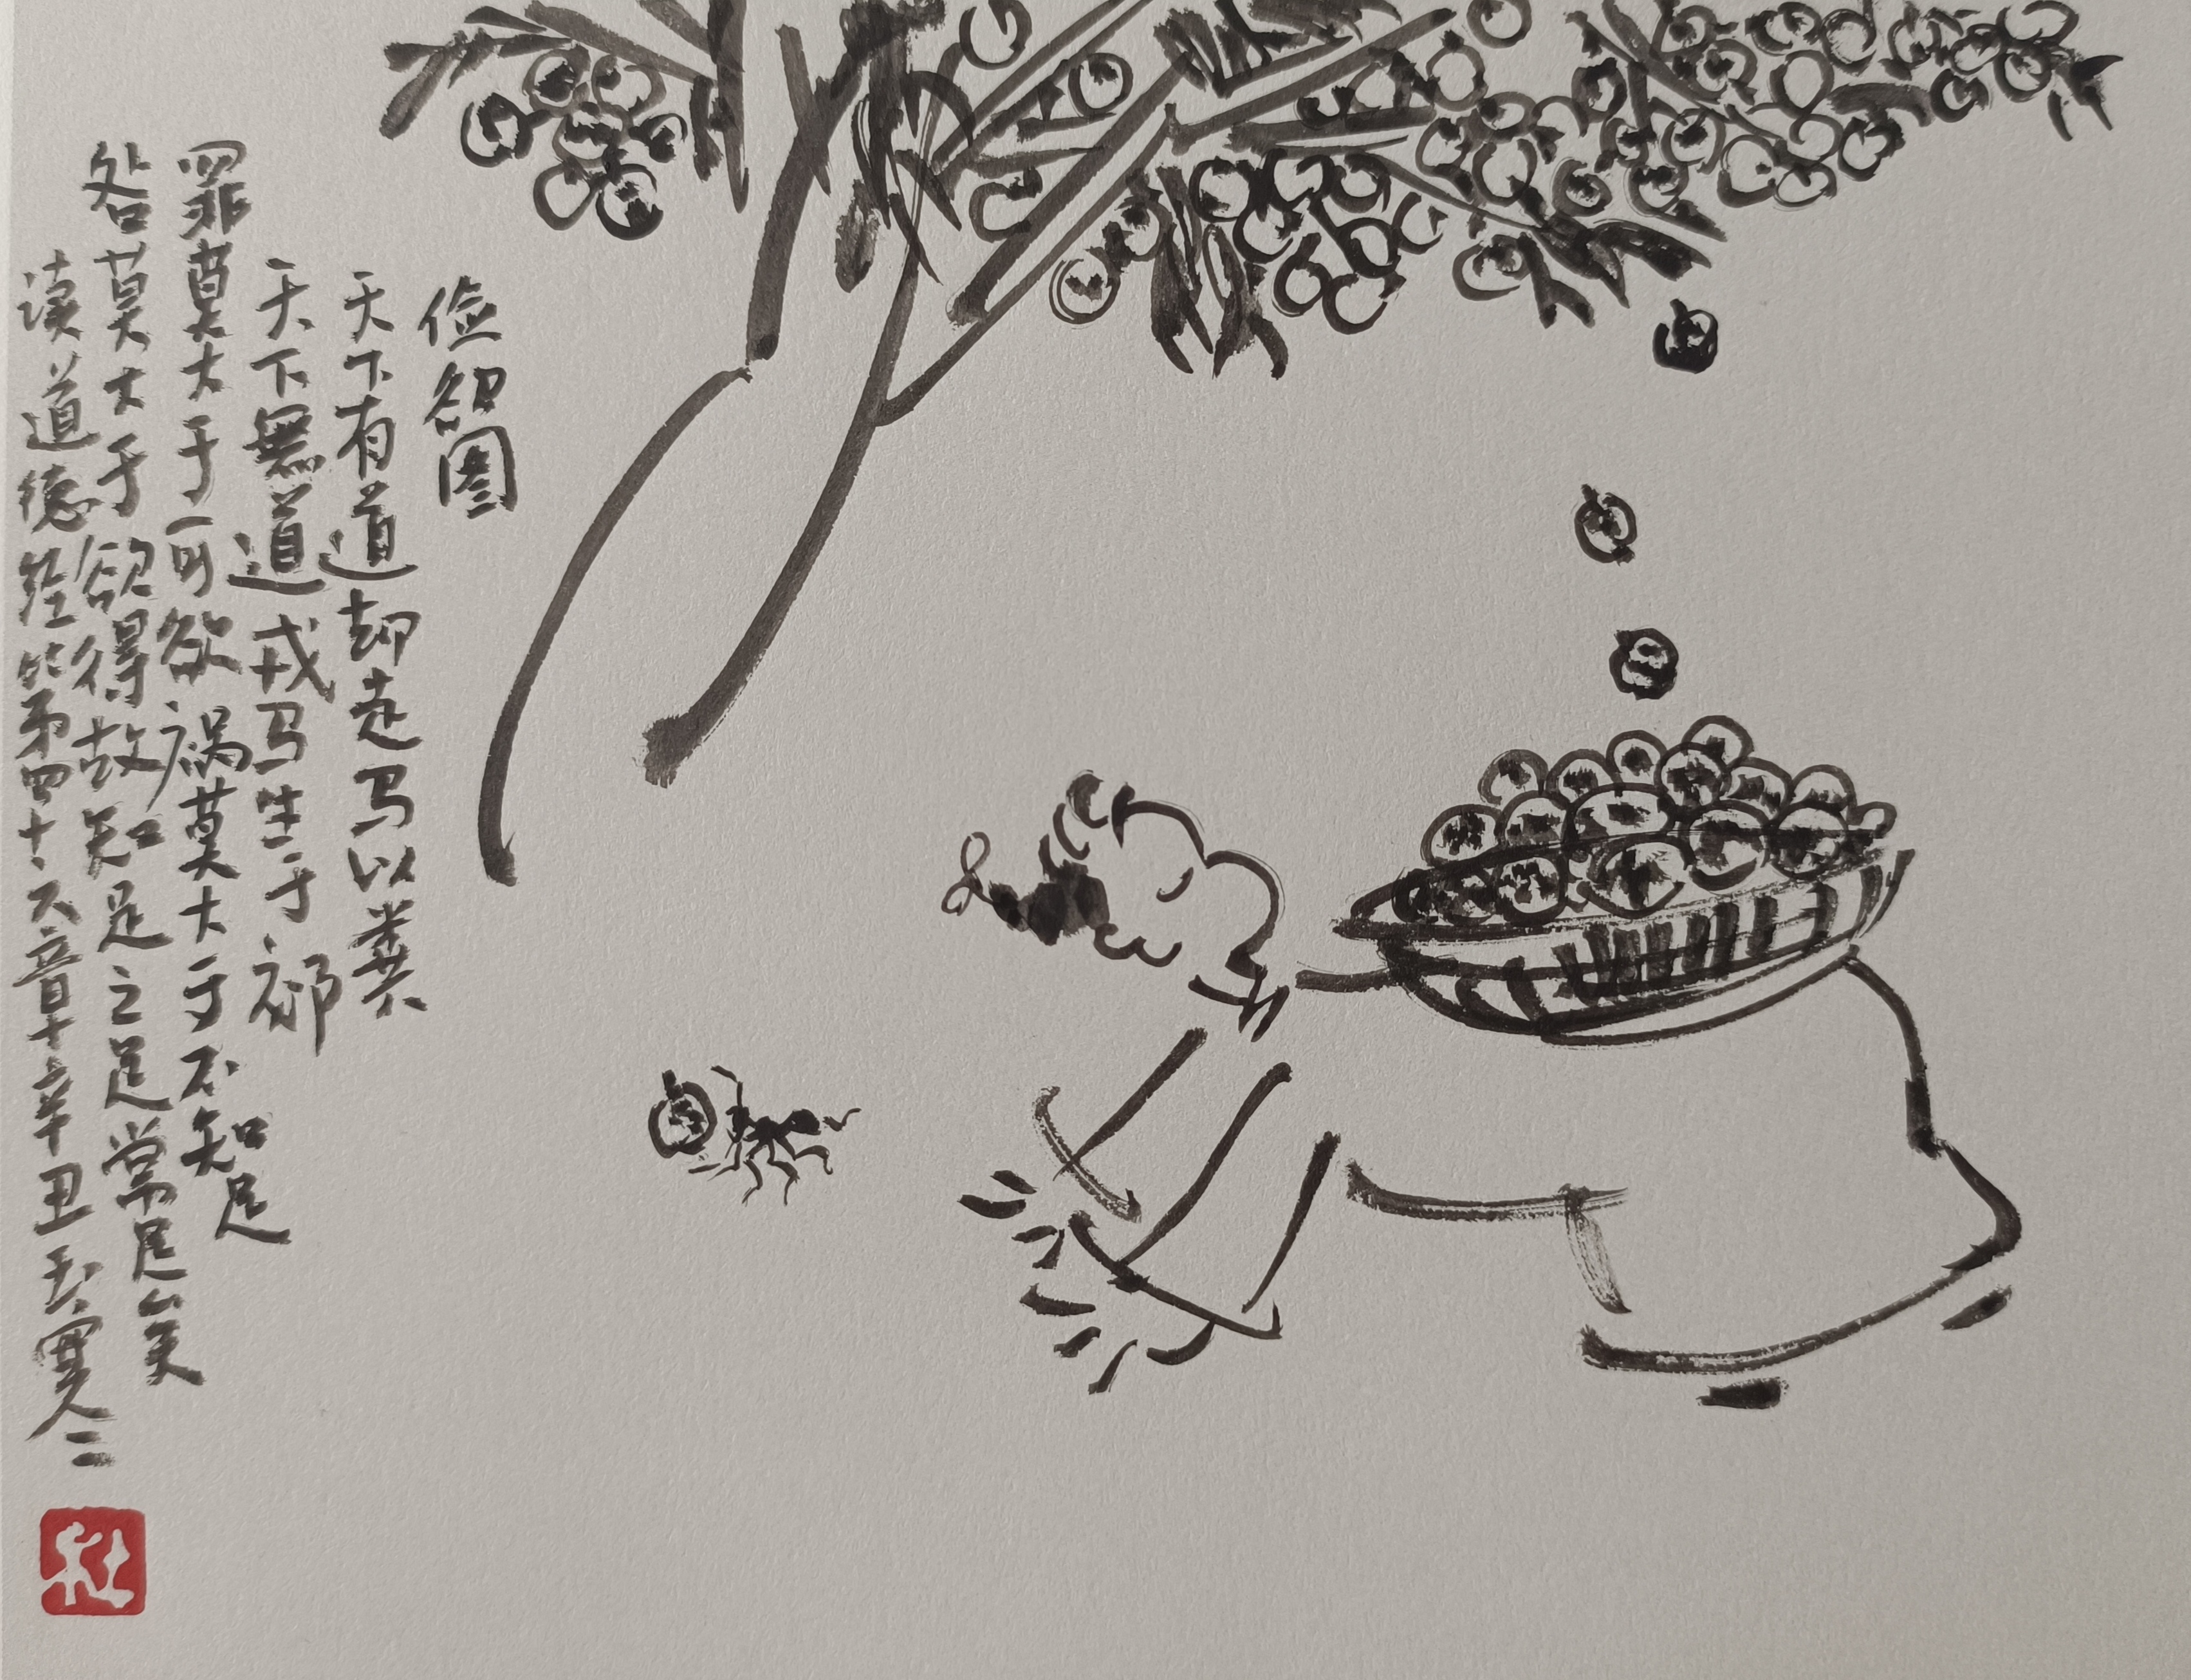 俭欲图
天下有道却走马以粪
天下無道戎马生于郊
罪莫大于可欲祸莫大于不知足
咎莫大于欲得故知足之足常足矣
读道德经第四十六章辛丑玉寞人三